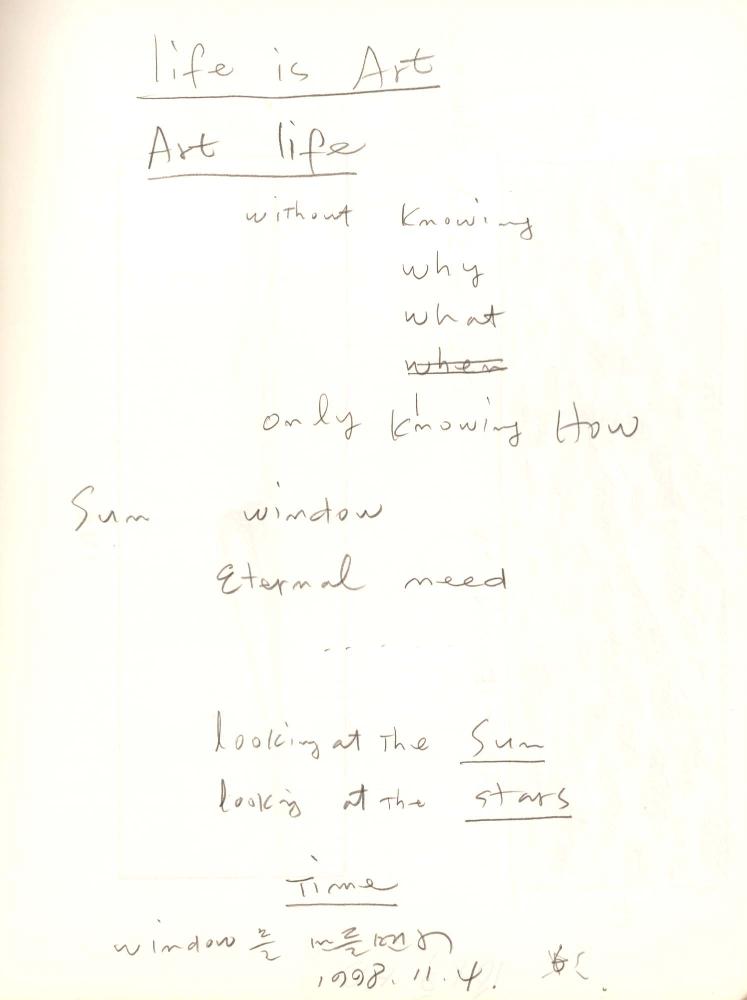 life is Art
Art life
without knowing
why
what
when
only knowing How
Sun window
Eternal need
.....
looking at the Sun
looking at the stars
Time
window를 만들면서
1998. 11. 4.